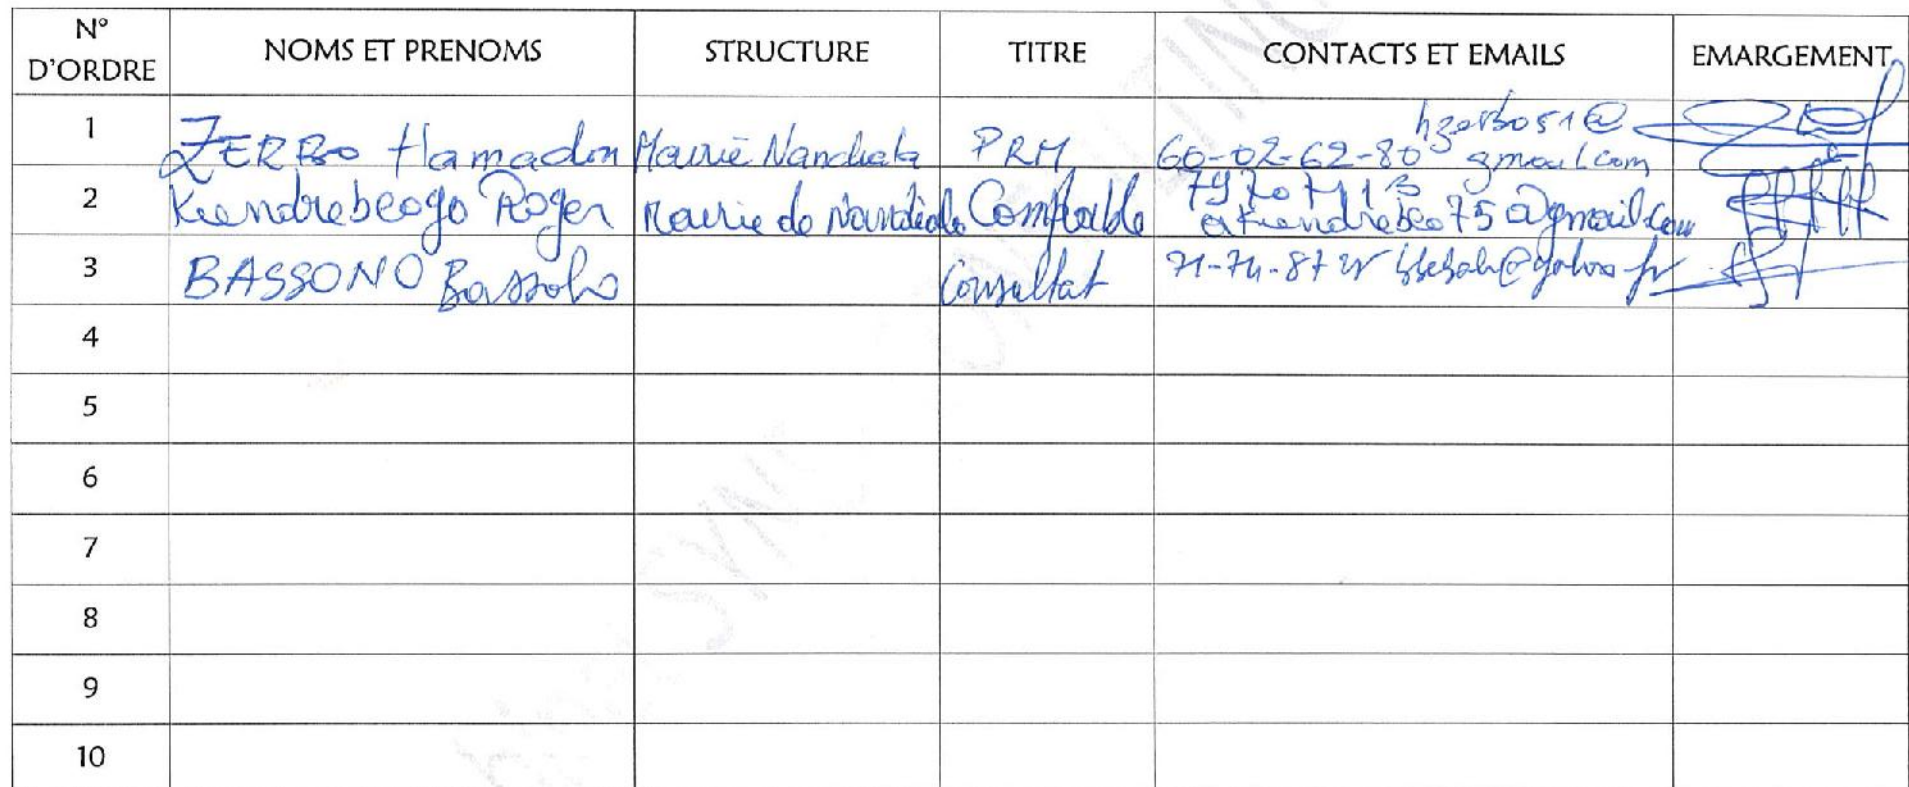 N° D'ORDRE NOMS ET PRENOMS STRUCTURE TITRE CONTACTS ET EMAILS EMARGEMENT
1 ZERBO Hamadou Mairie Nandiala PRM 60-02-62-80 hzerbo51@gmail.com
2 Kiendrebeogo Roger Mairie de Nandiala Comptable 75@gmail.com
3 BASSONO Bassolo Consultat
4
5
6
7
8
9
10